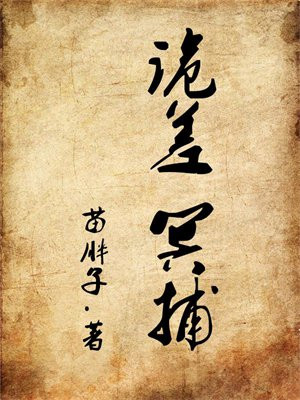 诡差 冥捕
苗胖子·著